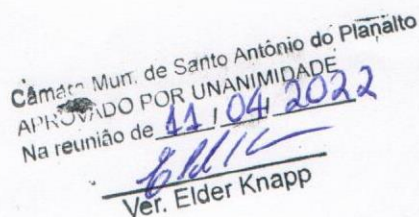 Câmara Mun. de Santo Antônio do Planalto
APROVADO POR UNANIMIDADE
Na reunião de 11 / 04 / 2022
Ver. Elder Knapp